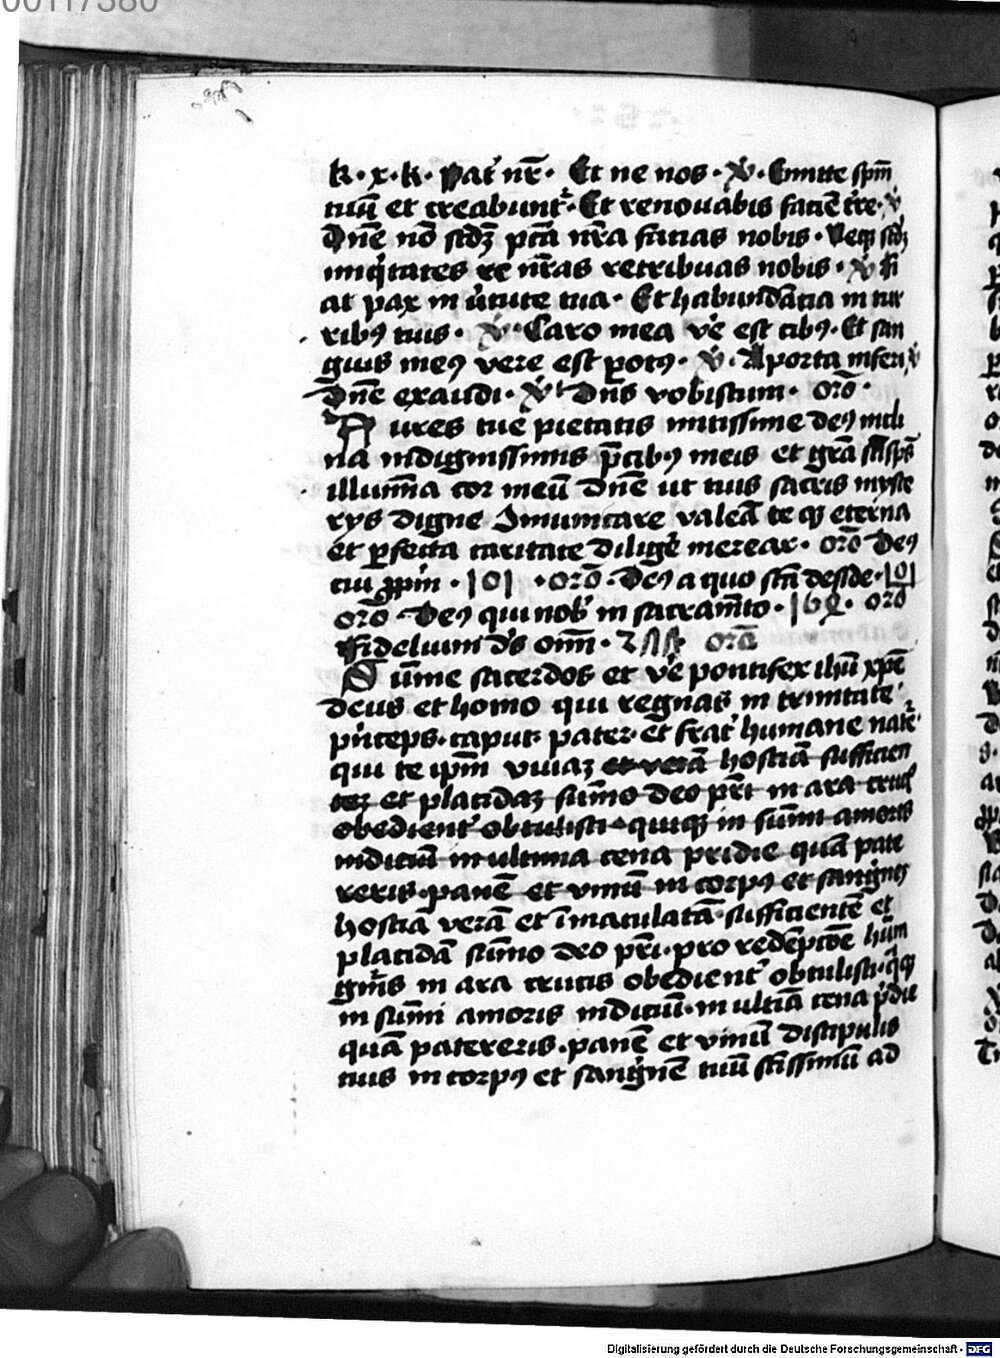 00117380
k · x · k · Pat̄ nr̄ · Et ne nos · ℣ · Emitte sp̄m
tuū et creabunt᷑ · Et renouabis faciē t᷑re · ℣
Dn̄e nō scd̄ꝫ pctā nr̄a facias nobis · Neqꝫ scd̄ꝫ
iniq̇tates re nr̄as retribuas nobis · ℣ fi
at pax in u̇tute tua · Et habundācia in tur
ribꝰ tuis · ℣ · Caro mea vē est cibꝰ · Et san
guis meꝰ vere est potꝰ · ℣ · A porta inferi ℣
Dn̄e exaudi · ℣ Dn̄s vobiscum · or̄o ·
Aures tue pietatis mitissime deꝰ incli
na indignissimis p̄cibꝰ meis et gr̄a sc̄i sp̄s
illumīa cor meū dn̄e ut tuis sacris myste
rys digne ī ministrare valeā te qꝫ eterna
et ꝑfecta caritate diligē merear · or̄o Deꝰ
cui ꝓpiū · 101 · or̄o · Deꝰ a quo sc̄a deside · 101
or̄o · Deus qui nob᷑ in sacram̄to · 162 · or̄o
fidelium d̄s om̄i · 255 or̄o
Sūme sacerdos et vē pontifex ihū xp̄e
deus et homo qui regnas in trinitate
pⁱnceps · caput · pater · et frat᷑ humane nature
qui te ip̄m viuaꝫ et verā hostiā sufficien
teꝫ et placidaꝫ sūmo deo pr̄i in ara crucis
obedient᷑ obtulisti · quiqꝫ in sūmi amoris
indiciū in ultima cena pridie quā pate
reris · panē et vinū in corpꝰ et sangⁱneꝫ
hostiā verā et īmaculatā · sufficientē et
placidā sūmo deo pr̄i · pro redēpcōe hūai
gn̄is in ara crucis obedient᷑ obtulisti · qⁱqꝫ
in sūmi amoris indiciū · in ultīa cena pⁱdie
quā patereris · panē et vinū discipulis
tuis in corpꝰ et sangⁱnē tuū sc̄issimū ad
Digitalisierung gefördert durch die Deutsche Forschungsgemeinschaft - DFG